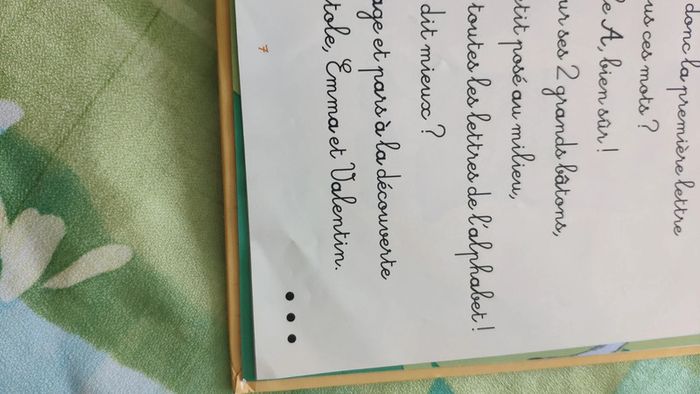 donc la première lettre
us ces mots ?
e A, bien sûr !
ur ses 2 grands bâtons,
etit posé au milieu,
toutes les lettres de l'alphabet !
dit mieux ?
age et pars à la découverte
tole, Emma et Valentin.
7